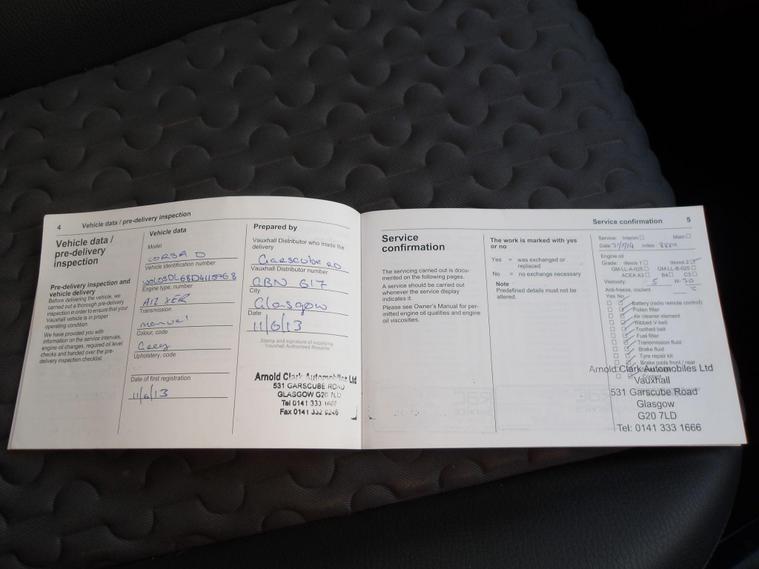 4 Vehicle data / pre-delivery inspection
Vehicle data /
pre-delivery
inspection
Pre-delivery inspection and
vehicle delivery
Before delivering the vehicle, we
carried out a thorough pre-delivery
inspection in order to ensure that your
Vauxhall vehicle is in proper
operating condition.
We have provided you with
information on the service intervals,
engine oil changes, required oil level
checks and handed over the pre-
delivery inspection checklist.
Vehicle data
Model
CORSA D
Vehicle identification number
Engine type, number
A12 XER
Transmission
manual
Colour, code
Grey
Upholstery, code
Date of first registration
11/6/13
Prepared by
Vauxhall Distributor who made the
delivery
Garscube RD
Vauxhall Distributor number
City
Glasgow
Date
11/6/13
Stamp and signature of supplying
Vauxhall Authorised Repairer
Arnold Clark Automobiles Ltd
531 GARSCUBE ROAD
GLASGOW G20 7LD
Tel 0141 333 1666
Fax 0141 332
Service confirmation 5
Service
confirmation
The servicing carried out is docu-
mented on the following pages.
A service should be carried out
whenever the service display
indicates it.
Please see Owner's Manual for per-
mitted engine oil qualities and engine
oil viscosities.
The work is marked with yes
or no
Yes = was exchanged or
replaced
No = no exchange necessary
Note
Predefined details must not be
altered.
Service: Interim Main
Date
Engine oil
Grade: dexos 1 dexos 2
GM-LL-A-025 GM-LL-B-025
ACEA A3 B4 C3
Viscosity: 5 W-30
Anti-freeze, coolant
Yes No
Battery (radio remote control)
Pollen filter
Air cleaner element
Ribbed V-belt
Toothed belt
Fuel filter
Transmission fluid
Brake fluid
Tyre repair kit
Brake pads front / rear
Arnold Clark Automobiles Ltd
Vauxhall
531 Garscube Road
Glasgow
G20 7LD
Tel: 0141 333 1666